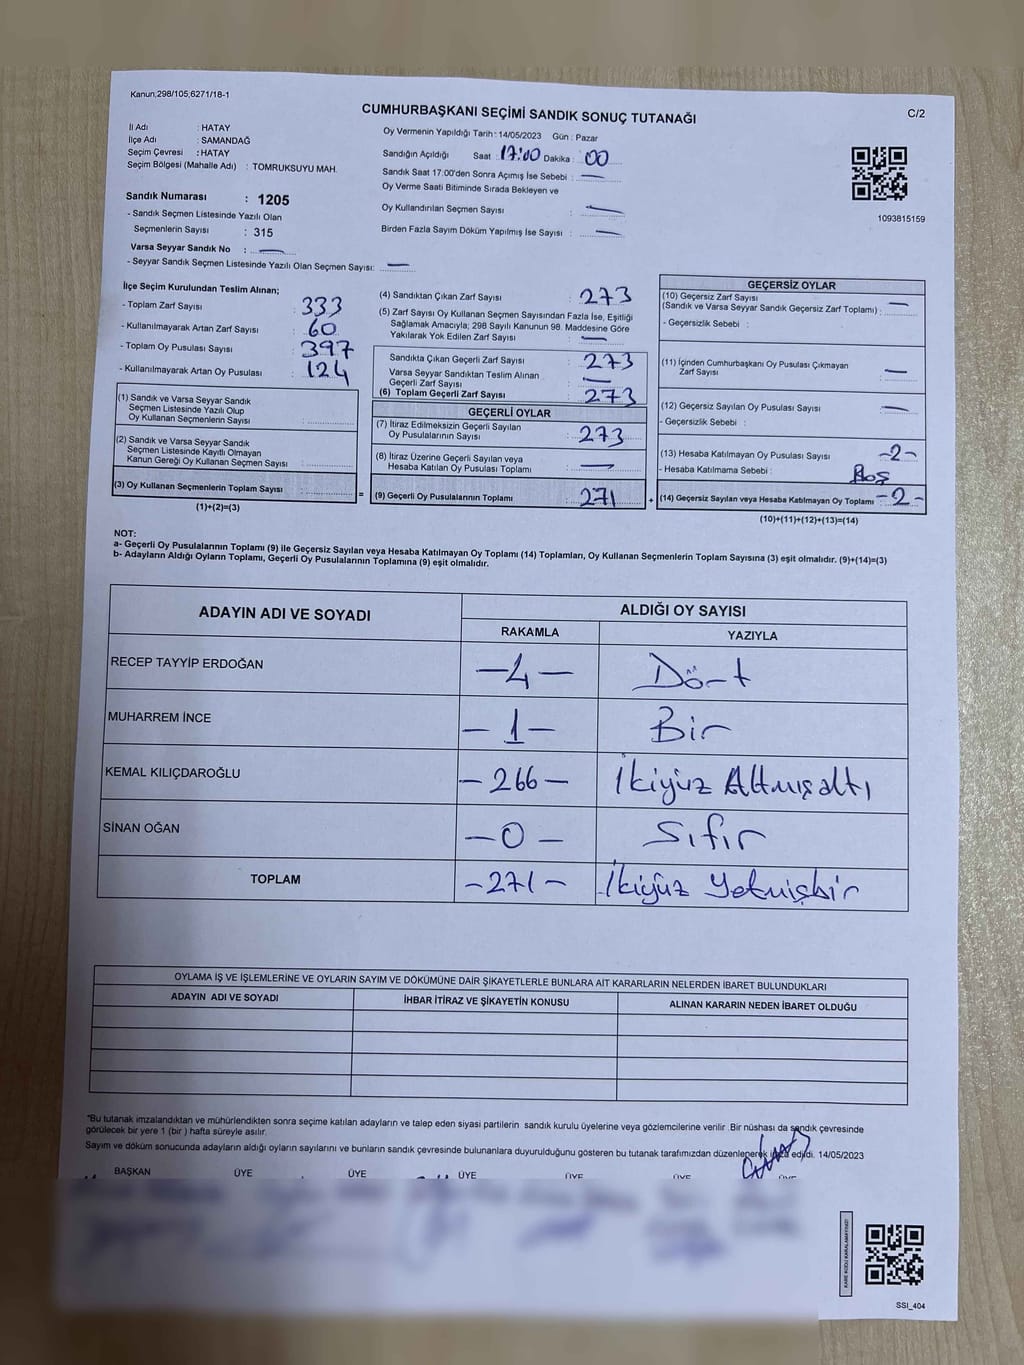 Kanun,298/105,6271/18-1
CUMHURBAŞKANI SEÇİMİ SANDIK SONUÇ TUTANAĞI
C/2
İl Adı : HATAY
İlçe Adı : SAMANDAĞ
Seçim Çevresi : HATAY
Seçim Bölgesi (Mahalle Adı) : TOMRUKSUYU MAH.
Oy Vermenin Yapıldığı Tarih : 14/05/2023 Gün : Pazar
Sandığın Açıldığı Saat : 17:00 Dakika : 00
Sandık Saat 17.00'den Sonra Açımış İse Sebebi : —
Oy Verme Saati Bitiminde Sırada Bekleyen ve
Oy Kullandırılan Seçmen Sayısı : —
Birden Fazla Sayım Döküm Yapılmış İse Sayısı : —
1093815159
Sandık Numarası : 1205
- Sandık Seçmen Listesinde Yazılı Olan
Seçmenlerin Sayısı : 315
Varsa Seyyar Sandık No : —
- Seyyar Sandık Seçmen Listesinde Yazılı Olan Seçmen Sayısı: —
İlçe Seçim Kurulundan Teslim Alınan;
- Toplam Zarf Sayısı : 333
- Kullanılmayarak Artan Zarf Sayısı : 60
- Toplam Oy Pusulası Sayısı : 397
- Kullanılmayarak Artan Oy Pusulası : 124
(1) Sandık ve Varsa Seyyar Sandık
Seçmen Listesinde Yazılı Olup
Oy Kullanan Seçmenlerin Sayısı :
(2) Sandık ve Varsa Seyyar Sandık
Seçmen Listesinde Kayıtlı Olmayan
Kanun Gereği Oy Kullanan Seçmen Sayısı :
(3) Oy Kullanan Seçmenlerin Toplam Sayısı : =
(1)+(2)=(3)
(4) Sandıktan Çıkan Zarf Sayısı : 273
(5) Zarf Sayısı Oy Kullanan Seçmen Sayısından Fazla İse, Eşitliği
Sağlamak Amacıyla; 298 Sayılı Kanunun 98. Maddesine Göre
Yakılarak Yok Edilen Zarf Sayısı : —
Sandıkta Çıkan Geçerli Zarf Sayısı : 273
Varsa Seyyar Sandıktan Teslim Alınan
Geçerli Zarf Sayısı : —
(6) Toplam Geçerli Zarf Sayısı : 273
GEÇERLİ OYLAR
(7) İtiraz Edilmeksizin Geçerli Sayılan
Oy Pusulalarının Sayısı : 273
(8) İtiraz Üzerine Geçerli Sayılan veya
Hesaba Katılan Oy Pusulası Toplamı : —
(9) Geçerli Oy Pusulalarının Toplamı : 271 +
GEÇERSİZ OYLAR
(10) Geçersiz Zarf Sayısı
(Sandık ve Varsa Seyyar Sandık Geçersiz Zarf Toplamı) : —
- Geçersizlik Sebebi :
(11) İçinden Cumhurbaşkanı Oy Pusulası Çıkmayan
Zarf Sayısı : —
(12) Geçersiz Sayılan Oy Pusulası Sayısı : —
- Geçersizlik Sebebi :
(13) Hesaba Katılmayan Oy Pusulası Sayısı : -2-
- Hesaba Katılmama Sebebi : Boş
(14) Geçersiz Sayılan veya Hesaba Katılmayan Oy Toplamı : -2-
(10)+(11)+(12)+(13)=(14)
NOT:
a- Geçerli Oy Pusulalarının Toplamı (9) ile Geçersiz Sayılan veya Hesaba Katılmayan Oy Toplamı (14) Toplamları, Oy Kullanan Seçmenlerin Toplam Sayısına (3) eşit olmalıdır. (9)+(14)=(3)
b- Adayların Aldığı Oyların Toplamı, Geçerli Oy Pusulalarının Toplamına (9) eşit olmalıdır.
ADAYIN ADI VE SOYADI ALDIĞI OY SAYISI
RAKAMLA YAZIYLA
RECEP TAYYİP ERDOĞAN -4- Dört
MUHARREM İNCE -1- Bir
KEMAL KILIÇDAROĞLU -266- İkiyüz Altmışaltı
SİNAN OĞAN -0- Sıfır
TOPLAM -271- İkiyüz Yetmişbir
OYLAMA İŞ VE İŞLEMLERİNE VE OYLARIN SAYIM VE DÖKÜMÜNE DAİR ŞİKAYETLERLE BUNLARA AİT KARARLARIN NELERDEN İBARET BULUNDUKLARI
ADAYIN ADI VE SOYADI İHBAR İTİRAZ VE ŞİKAYETİN KONUSU ALINAN KARARIN NEDEN İBARET OLDUĞU
*Bu tutanak imzalandıktan ve mühürlendikten sonra seçime katılan adayların ve talep eden siyasi partilerin sandık kurulu üyelerine veya gözlemcilerine verilir .Bir nüshası da sandık çevresinde
görülecek bir yere 1 (bir ) hafta süreyle asılır.
Sayım ve döküm sonucunda adayların aldığı oyların sayılarını ve bunların sandık çevresinde bulunanlara duyurulduğunu gösteren bu tutanak tarafımızdan düzenlenerek imza edildi. 14/05/2023
BAŞKAN ÜYE ÜYE ÜYE ÜYE ÜYE ÜYE
KARE KODU KARALAMAYINIZ!
SSI_404